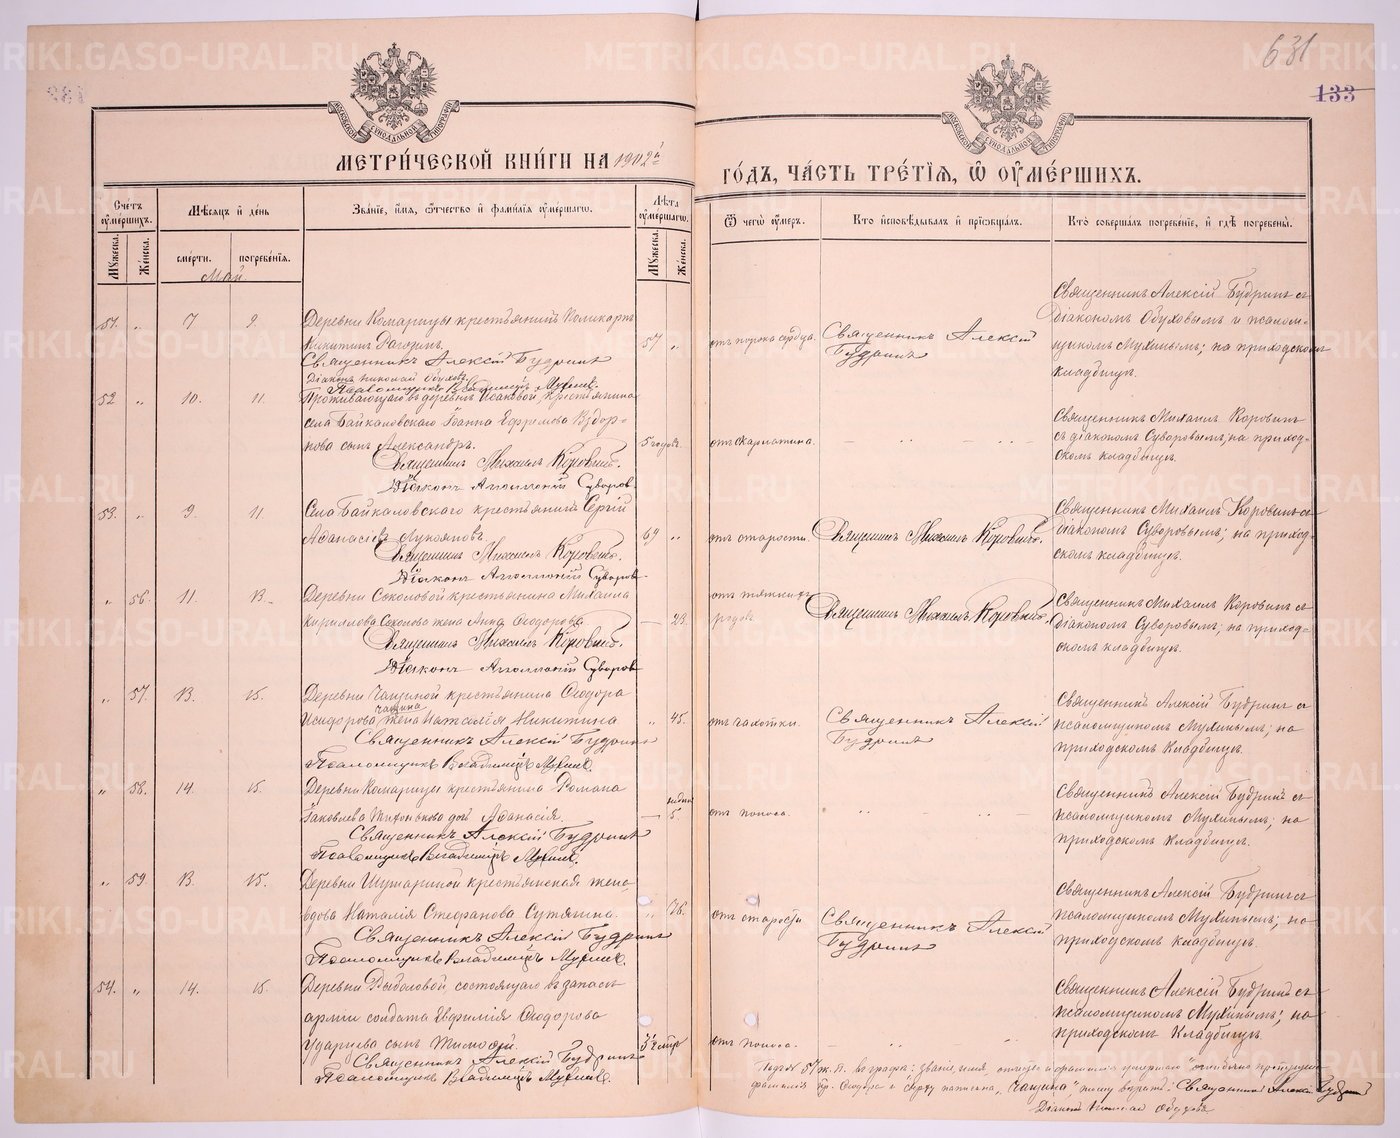 631
133
МЕТРИЧЕСКОЙ КНИГИ НА 1902й
ГОДЪ, ЧАСТЬ ТРЕТІЯ, Ѿ ОУМЕРШИХЪ.
Счетъ оумершихъ.
Мѣсяцъ и день
Званіе, имя, отчество и фамилія оумершаго.
Лѣта оумершаго.
Ѿ чего оумеръ.
Кто исповѣдывалъ и пріобщалъ.
Кто совершалъ погребеніе, и гдѣ погребены.
Мужеска. Женска.
смерти. погребенія.
Мужеска. Женска.
Май
51. „ 7 9.
Деревни Комарицы крестьянинъ Поликарпъ
Никитинъ
Священникъ Алексій Будринъ
Діаконъ Николай Обуховъ
Псаломщикъ Владиміръ Мухинъ.
57 „
отъ порока сердца.
Священникъ Алексій
Будринъ
Священникъ Алексій Будринъ съ
діакономъ Обуховымъ и псалом-
щикомъ Мухинымъ; на приходскомъ
кладбищѣ.
52 „ 10. 11.
Проживающаго въ деревнѣ Исаковой, крестьянина
села Байкаловскаго Іоанна Ефремова Выдор-
нова сынъ Александръ.
Священникъ Михаилъ Коровинъ.
Діаконъ Аполлоній Суворовъ
5 годовъ
отъ скарлатина.
Священникъ Михаилъ Коровинъ
съ діакономъ Суворовымъ; на приход-
скомъ кладбищѣ.
53. „ 9. 11
Села Байкаловскаго крестьянинъ Сергій
Аѳанасіевъ Лукояновъ.
Священникъ Михаилъ Коровинъ.
Діаконъ Аполлоній Суворовъ.
69 „
отъ старости.
Священникъ Михаилъ Коровинъ.
Священникъ Михаилъ Коровинъ съ
діакономъ Суворовымъ; на приход-
скомъ кладбищѣ.
„ 56. 11. 13.
Деревни Соколовой крестьянина Михаила
Кириллова Соколова жена Анна Ѳеодорова
Священникъ Михаилъ Коровинъ.
Діаконъ Аполлоній Суворовъ
— 23.
отъ тяжкихъ
родовъ
Священникъ Михаилъ Коровинъ.
Священникъ Михаилъ Коровинъ съ
діакономъ Суворовымъ; на приход-
скомъ кладбищѣ.
„ 57. 13. 15.
Деревни Чащиной крестьянина Ѳеодора
Чащина
Исидорова жена Наталія Никитина
Священникъ Алексій Будринъ
Псаломщикъ Владиміръ Мухинъ.
„ 45.
отъ чахотки.
Священникъ Алексій
Будринъ
Священникъ Алексій Будринъ съ
псаломщикомъ Мухинымъ; на
приходскомъ кладбищѣ.
„ 58. 14. 15.
Деревни Комарицы крестьянина Романа
Яковлева дочь Аѳанасія.
Священникъ Алексій Будринъ
Псаломщикъ Владиміръ Мухинъ.
недѣль
— 5.
отъ поноса.
Священникъ Алексій Будринъ съ
псаломщикомъ Мухинымъ; на
приходскомъ кладбищѣ.
„ 59. 13. 15.
Деревни Шушариной крестьянская жена
вдова Наталія Стефанова Сутягина.
Священникъ Алексій Будринъ
Псаломщикъ Владиміръ Мухинъ.
„ 76.
отъ старости
Священникъ Алексій
Будринъ
Священникъ Алексій Будринъ съ
псаломщикомъ Мухинымъ; на
приходскомъ кладбищѣ.
54. „ 14. 15.
Деревни Рыболовой состоящаго въ запасѣ
арміи солдата Евфимія Ѳеодорова
Ударцева сынъ Тимоѳей.
Священникъ Алексій Будринъ
Псаломщикъ Владиміръ Мухинъ.
отъ поноса.
Священникъ Алексій Будринъ съ
псаломщикомъ Мухинымъ; на
приходскомъ кладбищѣ.
57 ж. п. въ графѣ: званіе, имя, отчество и фамилія умершаго
фамилія кр. Ѳеодора и сверху написана „Чащина" тому вѣрить: Священникъ Алексій Будринъ
Діаконъ Николай Обуховъ